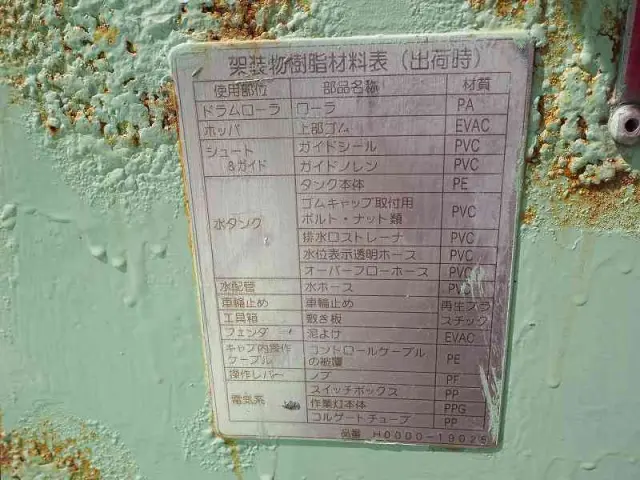 架装物樹脂材料表（出荷時）
使用部位 部品名称 材質
ドラムローラ ローラ PA
ホッパ 上部ゴム EVAC
シュート ガイドシール PVC
&ガイド ガイドノレン PVC
水タンク タンク本体 PE
ゴムキャップ取付用
ボルト・ナット類 PVC
排水口ストレーナ PVC
水位表示透明ホース PVC
オーバーフローホース PVC
水配管 水ホース PVC
車輪止め 車輪止め 再生プラ
工具箱 敷き板 スチック
フェンダ 泥よけ EVAC
キャブ内操作 コントロールケーブル
ケーブル の被覆 PE
操作レバー ノブ PF
電気系 スイッチボックス PP
作業灯本体 PPG
コルゲートチューブ PP
品番 H0000-1902